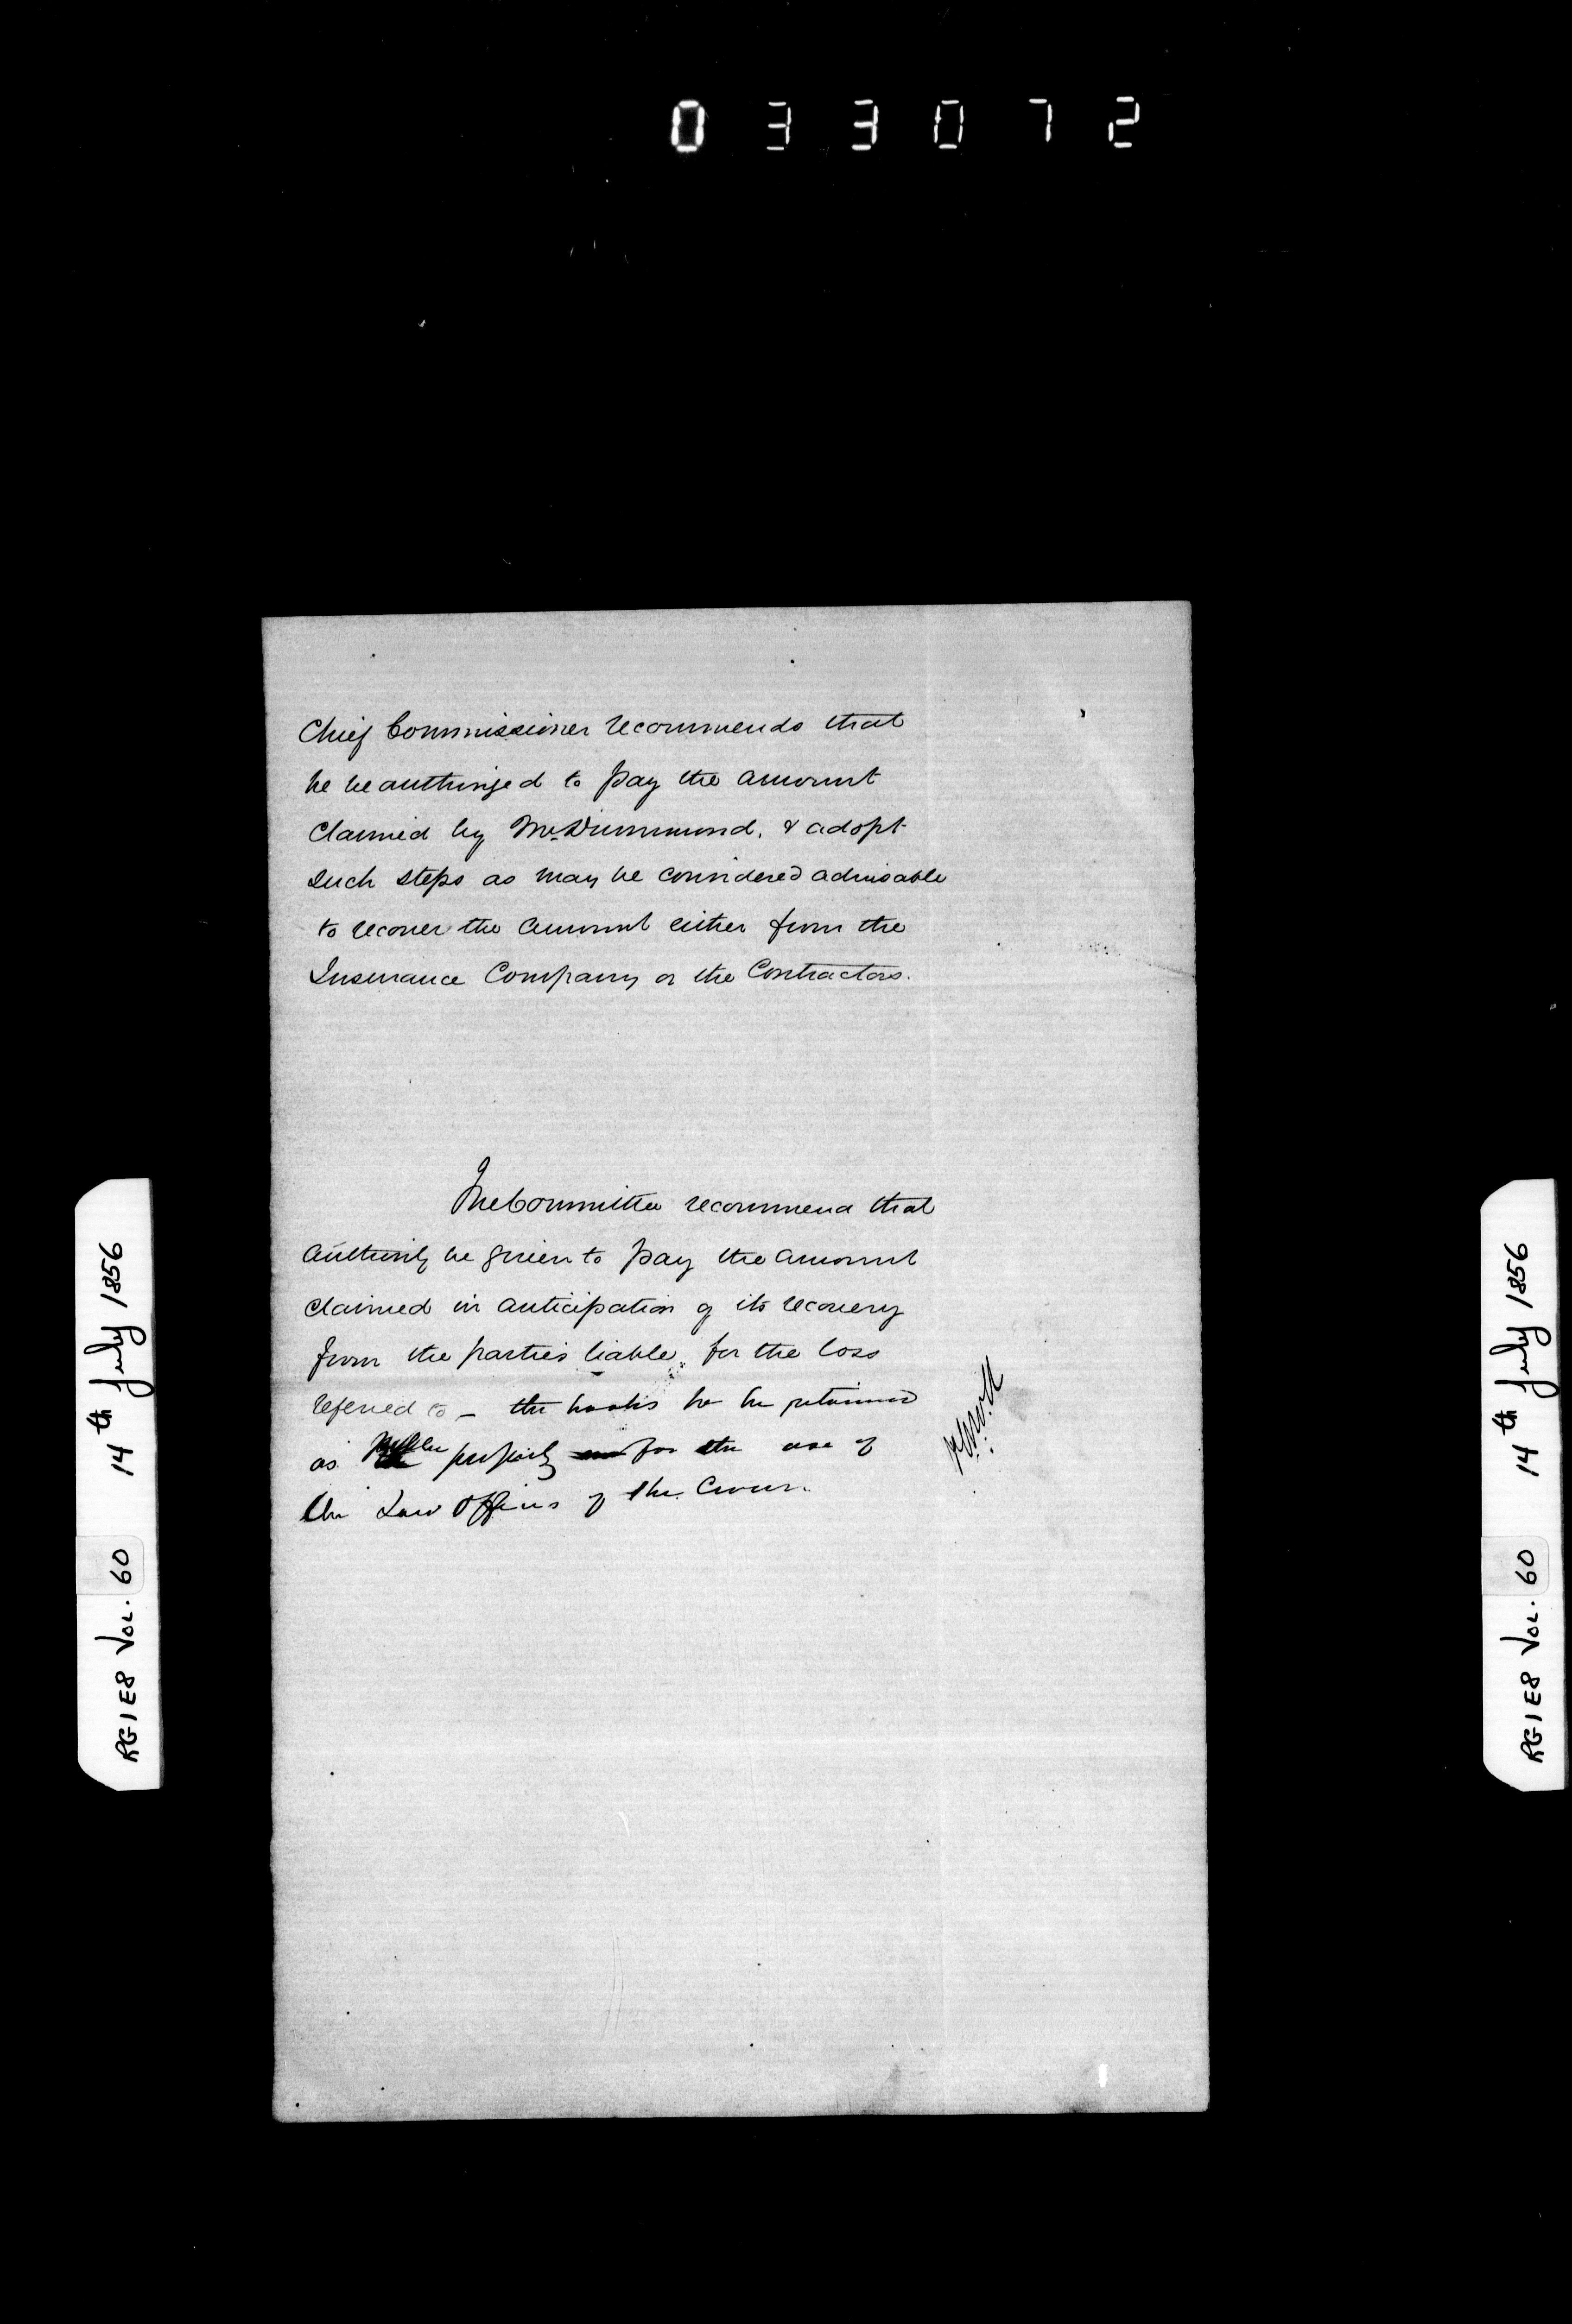 033072
Chief Commissioner recommends that
he be authorized to pay the amount
claimed by Mr. Drummond, & adopt
such steps as may be considered advisable
to recover the amount either from the
Insurance Company or the Contractors.
The Committee recommend that
authority be given to pay the amount
claimed in anticipation of its recovery
from the parties liable for the loss
referred to – the books to be retained
as public property for the use of
the Law Officers of the Crown.
RG1E8 Vol. 60 14th July 1856
RG1E8 Vol. 60 14th July 1856